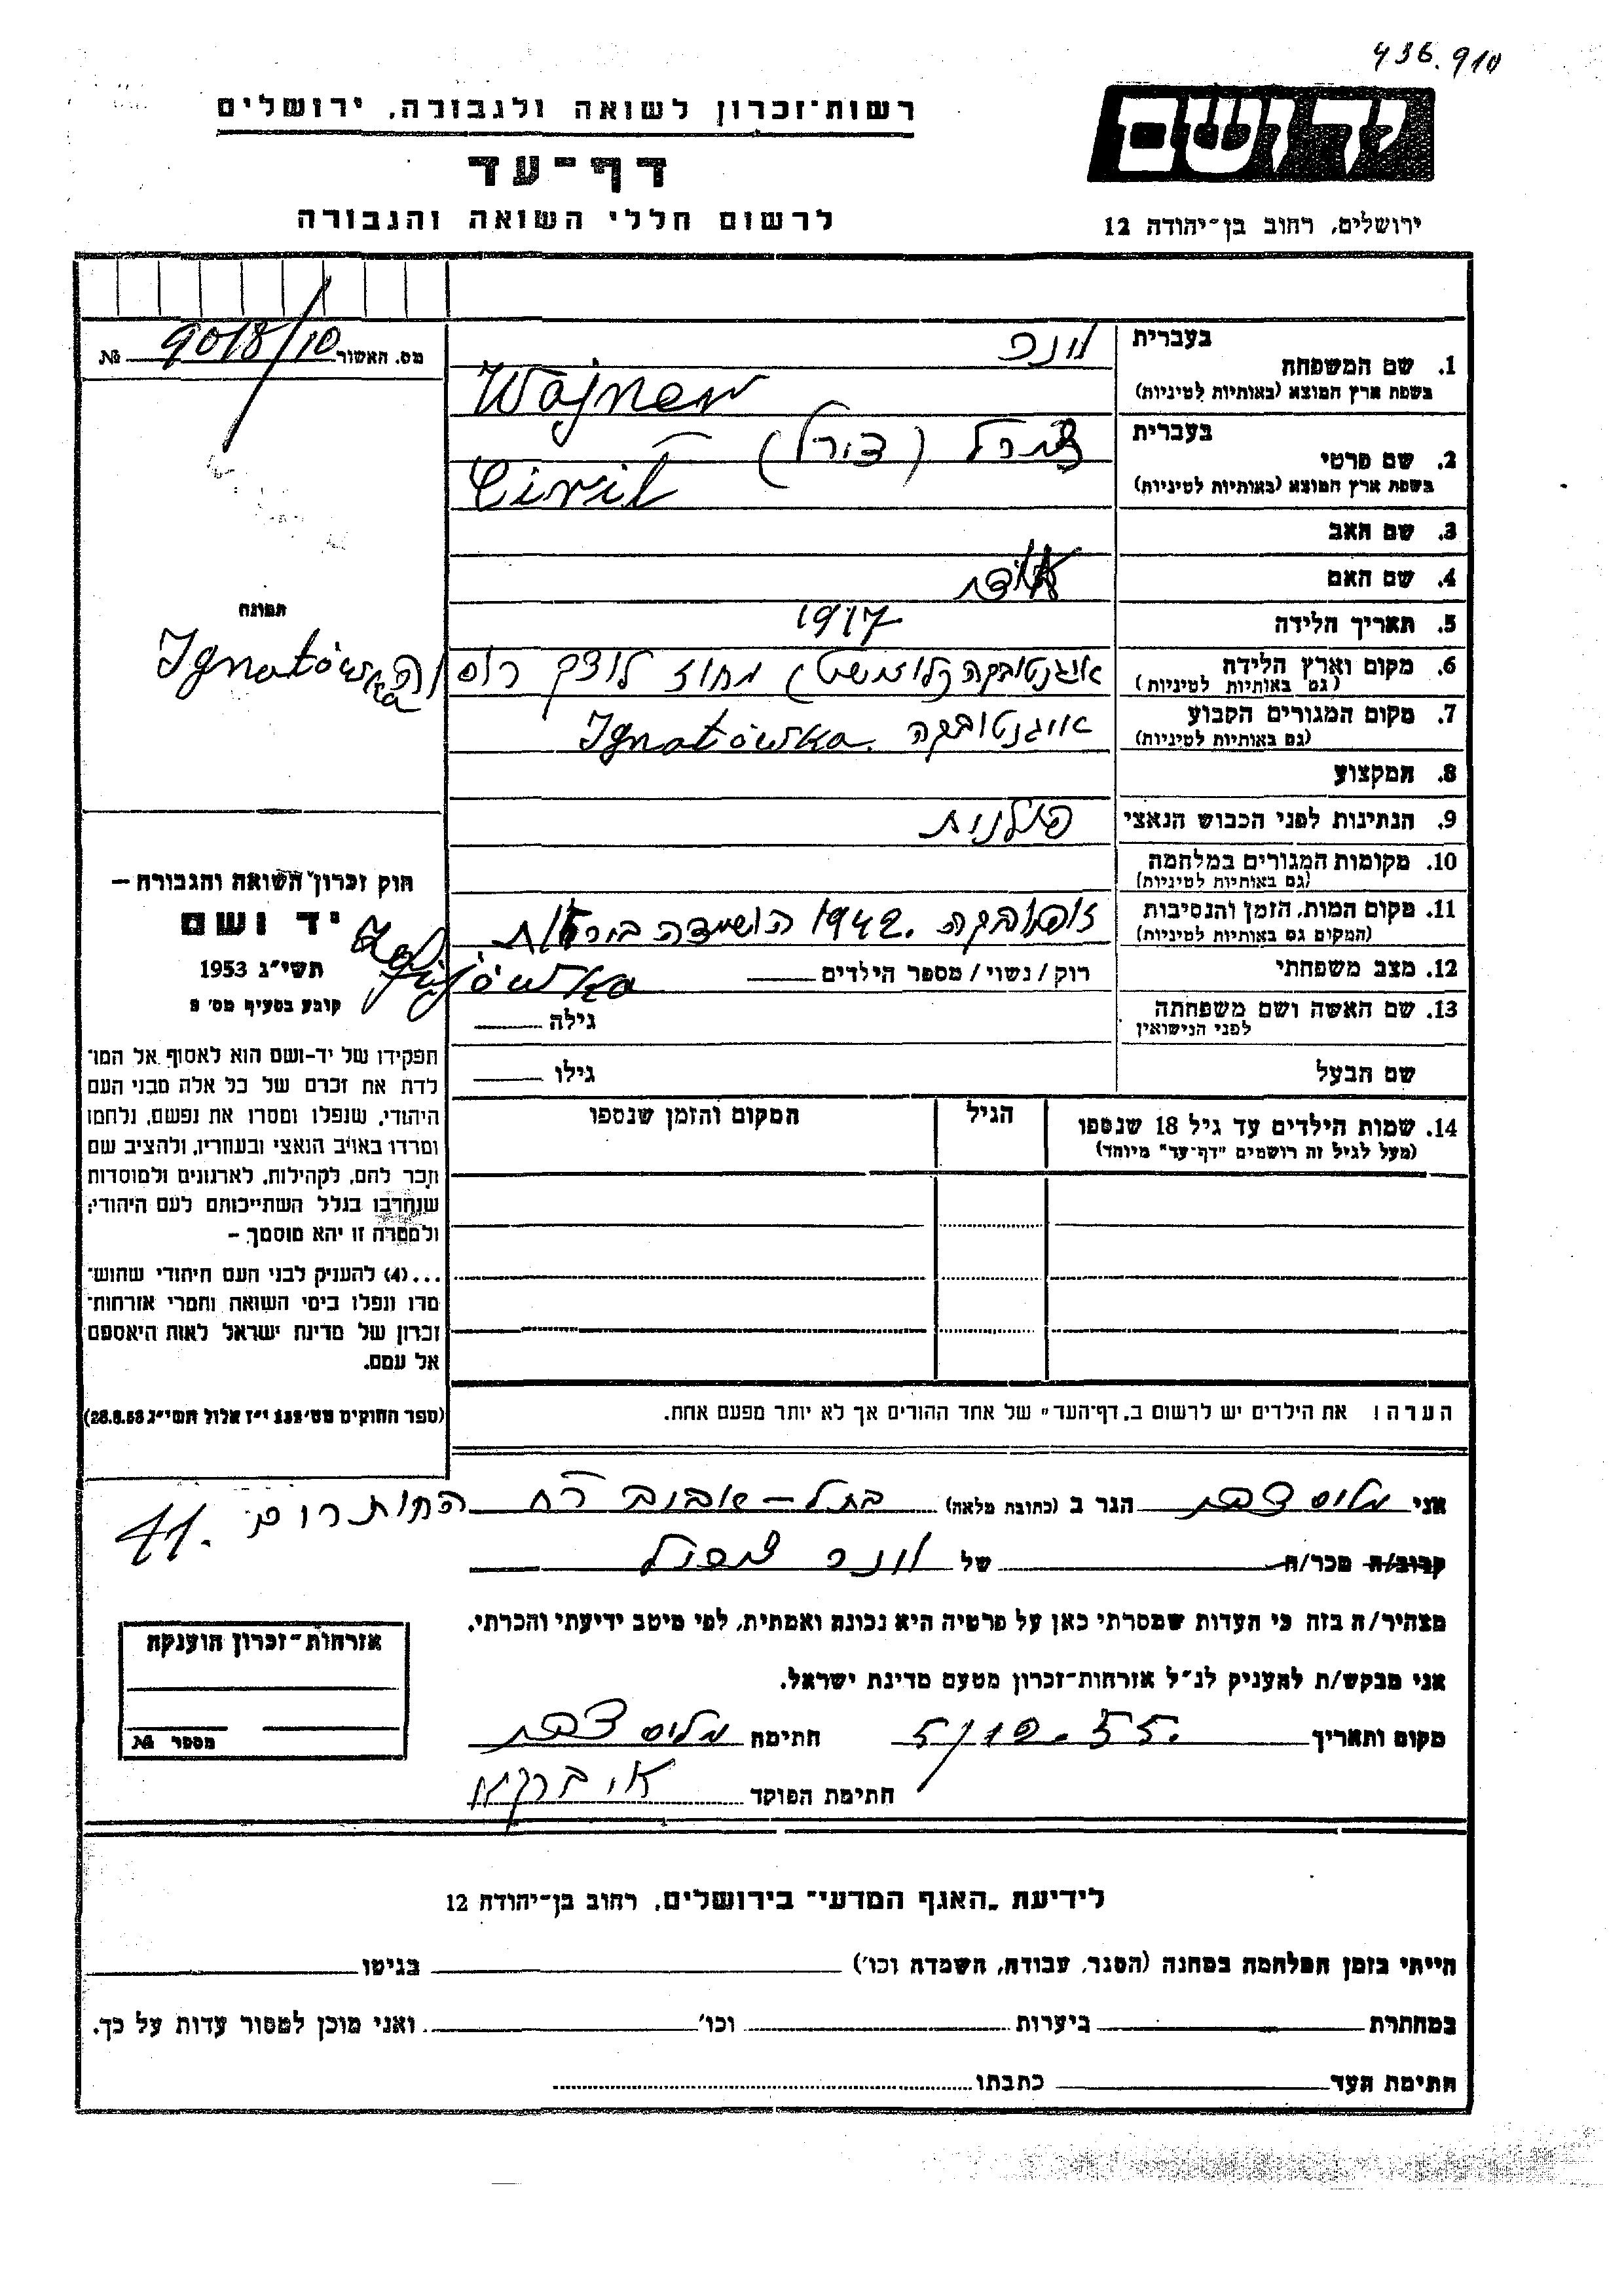 436.910
רשות־זכרון לשואה ולגבורה, ירושלים
דף־עד
לרשום חללי השואה והגבורה
יד ושם
ירושלים, רחוב בן־יהודה 12
מס. האשור 9018/10 №
1. שם המשפחה
בעברית
ונר
בשפת ארץ המוצא (באותיות לטיניות)
Wajner
2. שם פרטי
בעברית
צירל (צורל)
בשפת ארץ המוצא (באותיות לטיניות)
Ciril
3. שם האב
4. שם האם
5. תאריך הלידה
1917
6. מקום וארץ הלידה
(גם באותיות לטיניות)
מחוז לוצק
Ignatówka
7. מקום המגורים הקבוע
(גם באותיות לטיניות)
איגנטובקה Ignatówka
8. המקצוע
9. הנתינות לפני הכבוש הנאצי
פולנית
10. מקומות המגורים במלחמה
(גם באותיות לטיניות)
11. מקום המות, הזמן והנסיבות
(המקום גם באותיות לטיניות)
זופיובקה 1942. הושמדה
Zofijówka
12. מצב משפחתי
רוק / נשוי / מספר הילדים
13. שם האשה ושם משפחתה
לפני הנישואין
גילה
שם הבעל
גילו
14. שמות הילדים עד גיל 18 שנספו
(מעל לגיל זה רושמים "דף־עד" מיוחד)
הגיל
המקום והזמן שנספו
הערה! את הילדים יש לרשום ב„דף־העד" של אחד ההורים אך לא יותר מפעם אחת.
תמונה
חוק זכרון השואה והגבורה —
יד ושם
תשי"ג 1953
קובע בסעיף מס' 2
תפקידו של יד-ושם הוא לאסוף אל המו־
לדת את זכרם של כל אלה מבני העם
היהודי, שנפלו ומסרו את נפשם, נלחמו
ומרדו באויב הנאצי ובעוזריו, ולהציב שם
וזכר להם, לקהילות, לארגונים ולמוסדות
שנחרבו בגלל השתייכותם לעם היהודי;
ולמטרה זו יהא מוסמך –
...(4) להעניק לבני העם היהודי שהוש־
מדו ונפלו בימי השואה והמרי אזרחות־
זכרון של מדינת ישראל לאות היאספם
אל עמם.
(ספר החוקים מס' 132 י"ז אלול תשי"ג 28.8.53)
אני הגר ב (כתובת מלאה) בתל-אביב רח החותרים 41.
קרוב/ה מכר/ה של ונר צירל
מצהיר/ה בזה כי העדות שמסרתי כאן על פרטיה היא נכונה ואמתית, לפי מיטב ידיעתי והכרתי.
אני מבקש/ת להעניק לנ"ל אזרחות־זכרון מטעם מדינת ישראל.
מקום ותאריך 5/12.55. חתימה
חתימת הפוקד
אזרחות־זכרון הוענקה
מספר №
לידיעת „האגף המדעי" בירושלים, רחוב בן־יהודה 12
הייתי בזמן המלחמה במחנה (הסגר, עבודה, השמדה וכו') בגיטו
במחתרת ביערות וכו' ואני מוכן למסור עדות על כך.
חתימת העד כתבתו